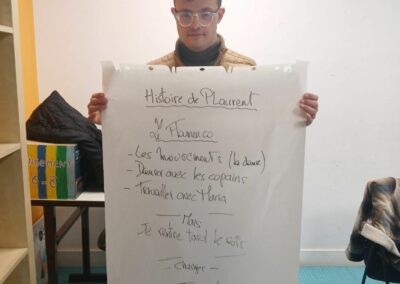 Histoire de PLaurent
Le Flamenco
- Les mouvements (la danse)
- Danser avec les copains
- Travailler avec Maria
Mais
Je rentre tard le soir
- Changer -